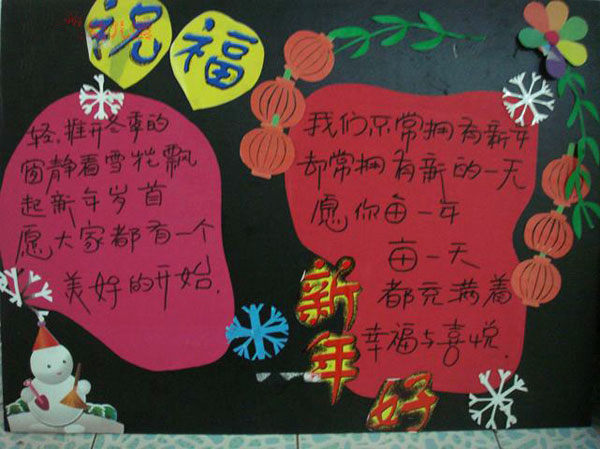 祝福
轻,推开冬季的
窗静看雪花飘
起新年岁首
愿大家都有一个
美好的开始.
我们不常拥有新年
却常拥有新的一天
愿你每一年
每一天
都充满着
幸福与喜悦.
新年好